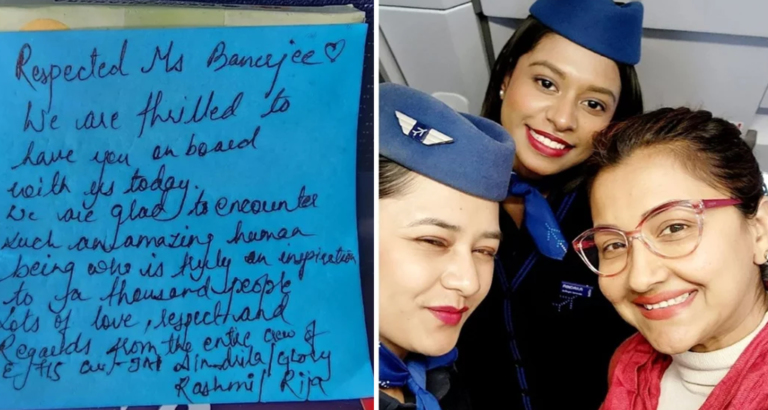 Respected Ms Banerjee
We are thrilled to
have you on board
with us today.
We are glad to encounter
such an amazing human
being who is truly an inspiration
to thousand people
Lots of love, respect and
Regards from the entire crew of
Rashmi/ Rija